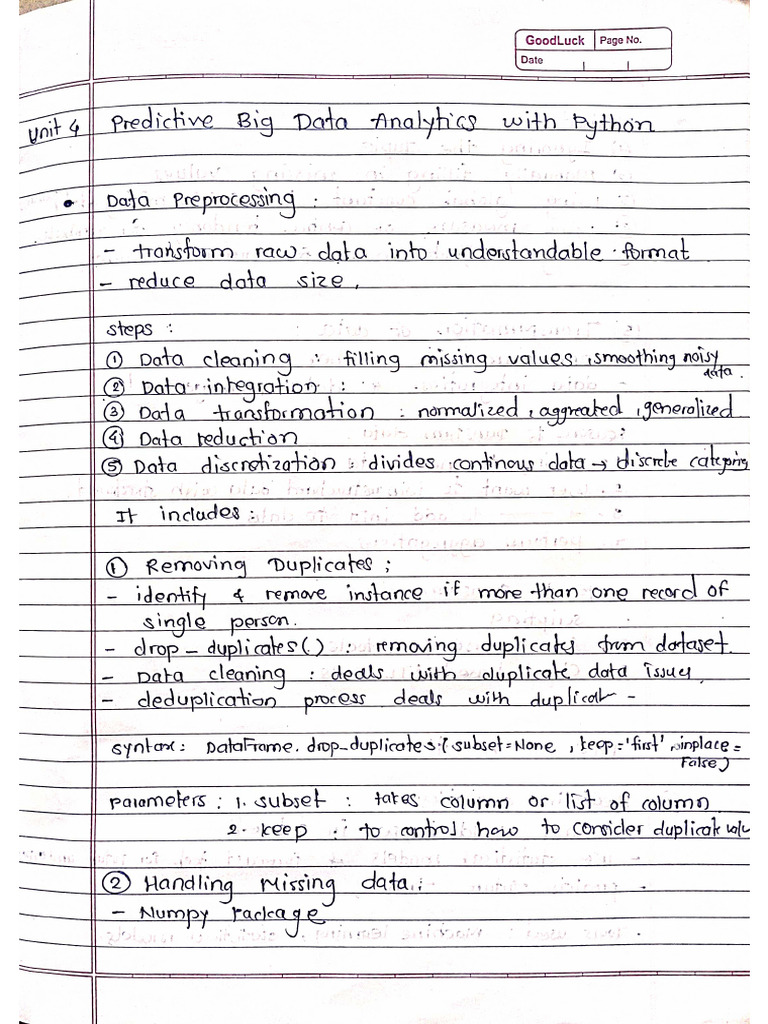 GoodLuck Page No.
Date
Unit 4 Predictive Big Data Analytics with Python
• Data Preprocessing :
- transform raw data into understandable format
- reduce data size,
steps :
① Data cleaning : filling missing values, smoothing noisy
data.
② Data integration :
③ Data transformation : normalized, aggreated, generalized
④ Data reduction
⑤ Data discretization : divides continous data → discrete
It includes :
① Removing Duplicates ;
- identify & remove instance if more than one record of
single person.
- drop_duplicates() : removing duplicates from dataset.
- Data cleaning : deals with duplicate data issues,
- deduplication process deals with duplicat -
syntax : DataFrame.drop_duplicates(subset=None, keep='first', inplace=
False)
Parameters : 1. subset : takes column or list of column
2. keep : to control how to consider duplicat
② Handling Missing data :
- Numpy Package